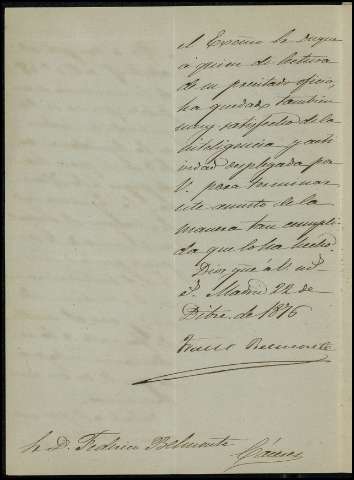 el Excmo Sr Duque
á quien di lectura
de su precitado oficio,
ha quedado tambien
muy satisfecho de la
inteligencia y acti
vidad desplegada por
V. para terminar
este asunto de la
manera tan cumpli
da que lo ha hecho.
Dios gue á V. ms
as. Madrid 22 de
Dbre. de 1876
Belmonte
Sr D. Federico Belmonte